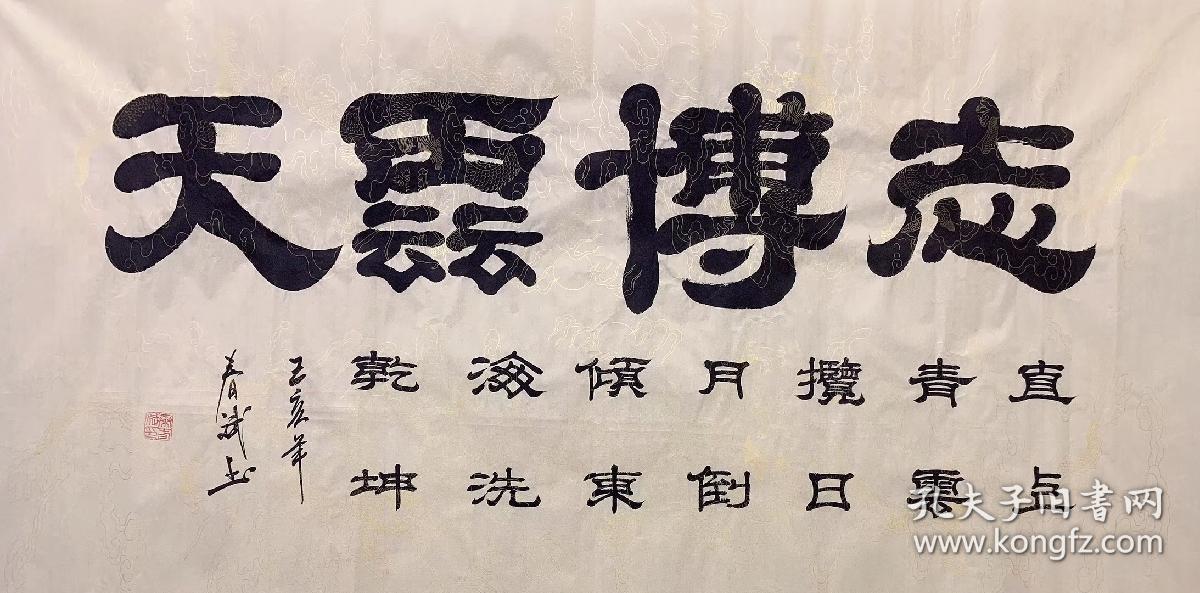 志博雲天
直上
青雲
攬日
月倒
傾東
海洗
乾坤
己亥年
春斌書
孔夫子旧書网
www.kongfz.com